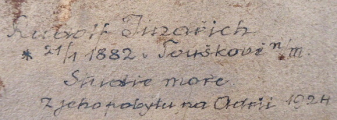 Rudolf Jindřich
* 21/1 1882 v Touškově n/m.
Studie moře
z jeho pobytu na Adrii 1924